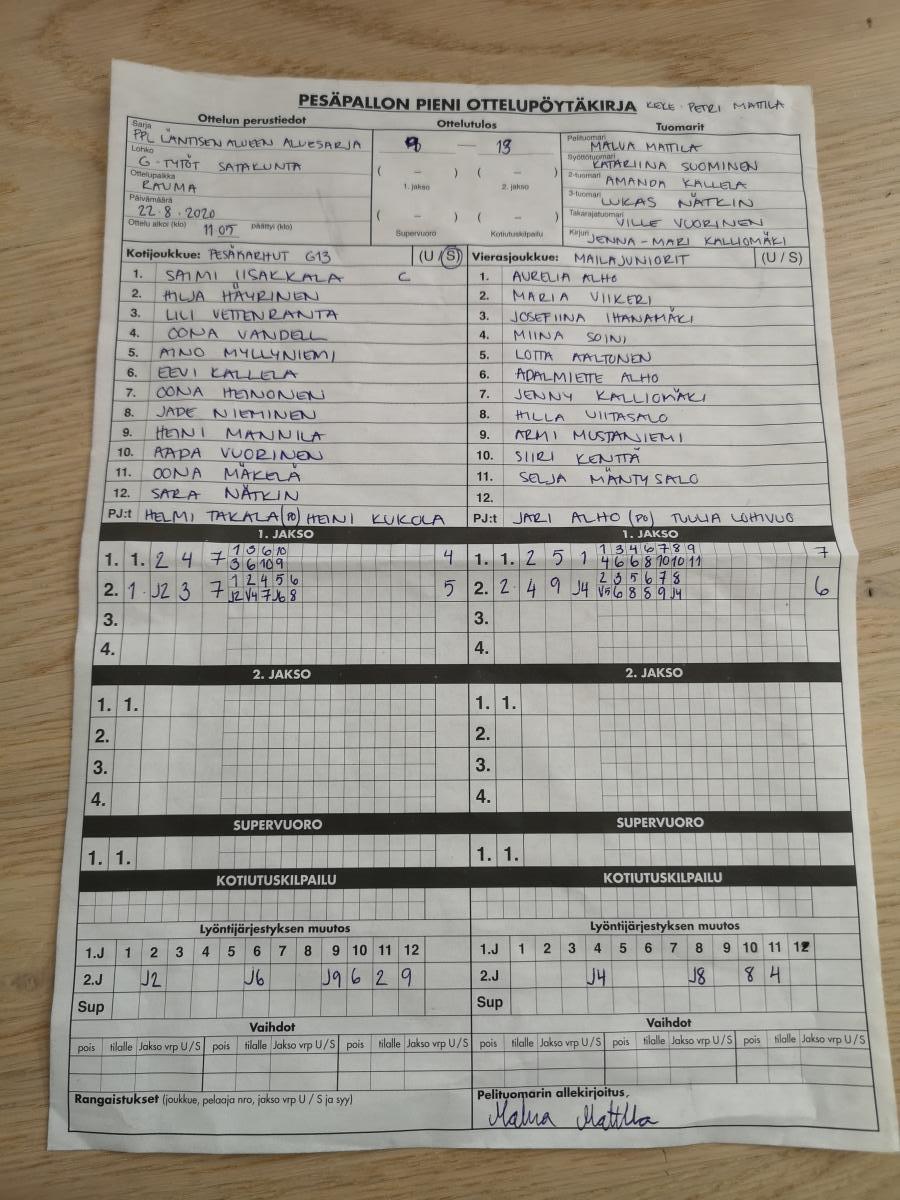 PESÄPALLON PIENI OTTELUPÖYTÄKIRJA KELE · PETRI MATTILA
Ottelun perustiedot Ottelutulos Tuomarit
Sarja PPL LÄNTISEN ALUEEN ALUESARJA 9 — 13 Pelituomari MALVA MATTILA
Lohko G-TYTÖT SATAKUNTA ( – ) ( – ) Syöttötuomari KATARIINA SUOMINEN
Ottelupaikka RAUMA 1. jakso 2. jakso 2-tuomari AMANDA KALLELA
Päivämäärä 22.8.2020 3-tuomari LUKAS NÄTKIN
( – ) ( – ) Takarajatuomari VILLE VUORINEN
Ottelu alkoi (klo) 11 05 päättyi (klo) Supervuoro Kotiutuskilpailu Kirjuri JENNA-MARI KALLIOMÄKI
Kotijoukkue: PESÄKARHUT G13 (U / S) Vierasjoukkue: MAILAJUNIORIT (U / S)
1. SAIMI IISAKKALA C 1. AURELIA ALHO
2. HILJA HÄYRINEN 2. MARIA VIIKERI
3. LILI VETTENRANTA 3. JOSEFIINA IHANAMÄKI
4. OONA VANDELL 4. MIINA SOINI
5. AINO MYLLYNIEMI 5. LOTTA AALTONEN
6. EEVI KALLELA 6. ADALMIETTE ALHO
7. OONA HEINONEN 7. JENNY KALLIOMÄKI
8. JADE NIEMINEN 8. HILLA VIITASALO
9. HEINI MANNILA 9. ARMI MUSTANIEMI
10. AADA VUORINEN 10. SIIRI KENTTÄ
11. OONA MÄKELÄ 11. SELJA MÄNTYSALO
12. SARA NÄTKIN 12.
PJ:t HELMI TAKALA (PO) HEINI KUKOLA PJ:t JARI ALHO (PO) TUULIA LOHIVUO
1. JAKSO 1. JAKSO
1. 1. 2 4 7 1 3 6 10 4 1. 1. 2 5 1 1 3 4 6 7 8 9 7
3 6 10 9 4 6 6 8 10 10 11
2. 1. J2 3 7 1 2 4 5 6 5 2. 2. 4 9 J4 2 3 5 6 7 8 6
J2 V4 7 J6 8 V5 6 8 8 9 J4
3. 3.
4. 4.
2. JAKSO 2. JAKSO
1. 1. 1. 1.
2. 2.
3. 3.
4. 4.
SUPERVUORO SUPERVUORO
1. 1. 1. 1.
KOTIUTUSKILPAILU KOTIUTUSKILPAILU
Lyöntijärjestyksen muutos Lyöntijärjestyksen muutos
1.J 1 2 3 4 5 6 7 8 9 10 11 12 1.J 1 2 3 4 5 6 7 8 9 10 11 12
2.J J2 J6 J9 6 2 9 2.J J4 J8 8 4
Sup Sup
Vaihdot Vaihdot
pois tilalle Jakso vrp U/S pois tilalle Jakso vrp U/S pois tilalle Jakso vrp U/S pois tilalle Jakso vrp U/S pois tilalle Jakso vrp U/S pois tilalle Jakso vrp U/S
Rangaistukset (joukkue, pelaaja nro, jakso vrp U / S ja syy) Pelituomarin allekirjoitus,
Malva Mattila